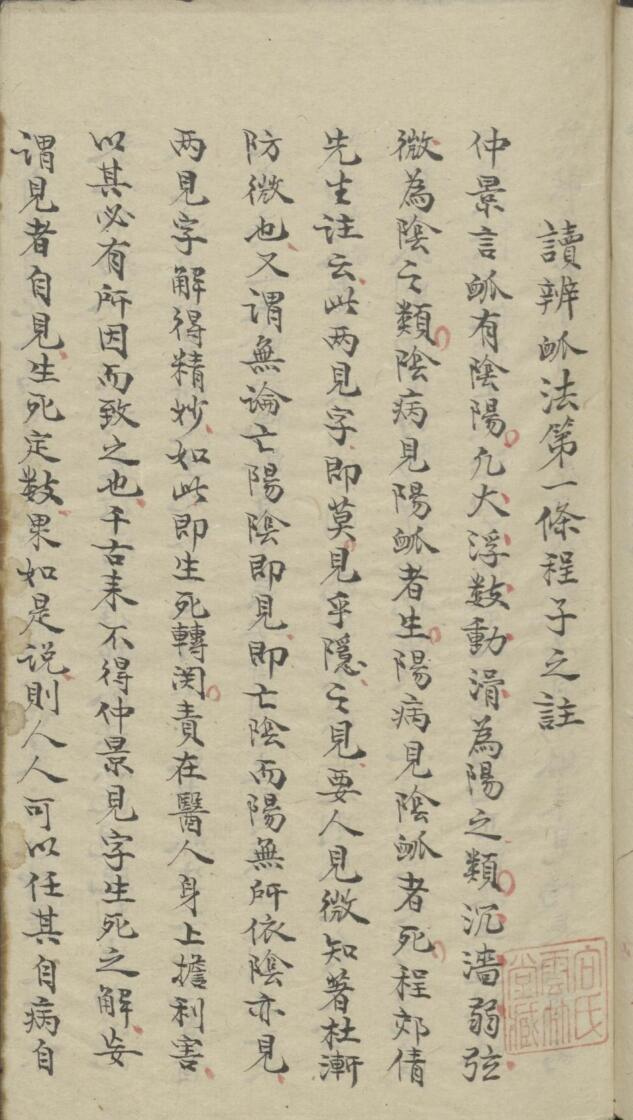 讀辨脈法第一條程子之註
仲景言脈有陰陽凡大浮数動滑為陽之類沉濇弱弦
微為陰之類陰病見陽脈者生陽病見陰脈者死程郊倩
先生註云此两見字即莫見乎隱之見要人見微知著杜漸
防微也又謂無論亡陽陰即見即亡陰而陽無所依陰亦見
两見字解得精妙如此即生死轉関責在醫人身上擔利害
以其必有所因而致之也千古来不得仲景見字生死之解妄
謂見者自見生死定数果如是说則人人可以任其自病自